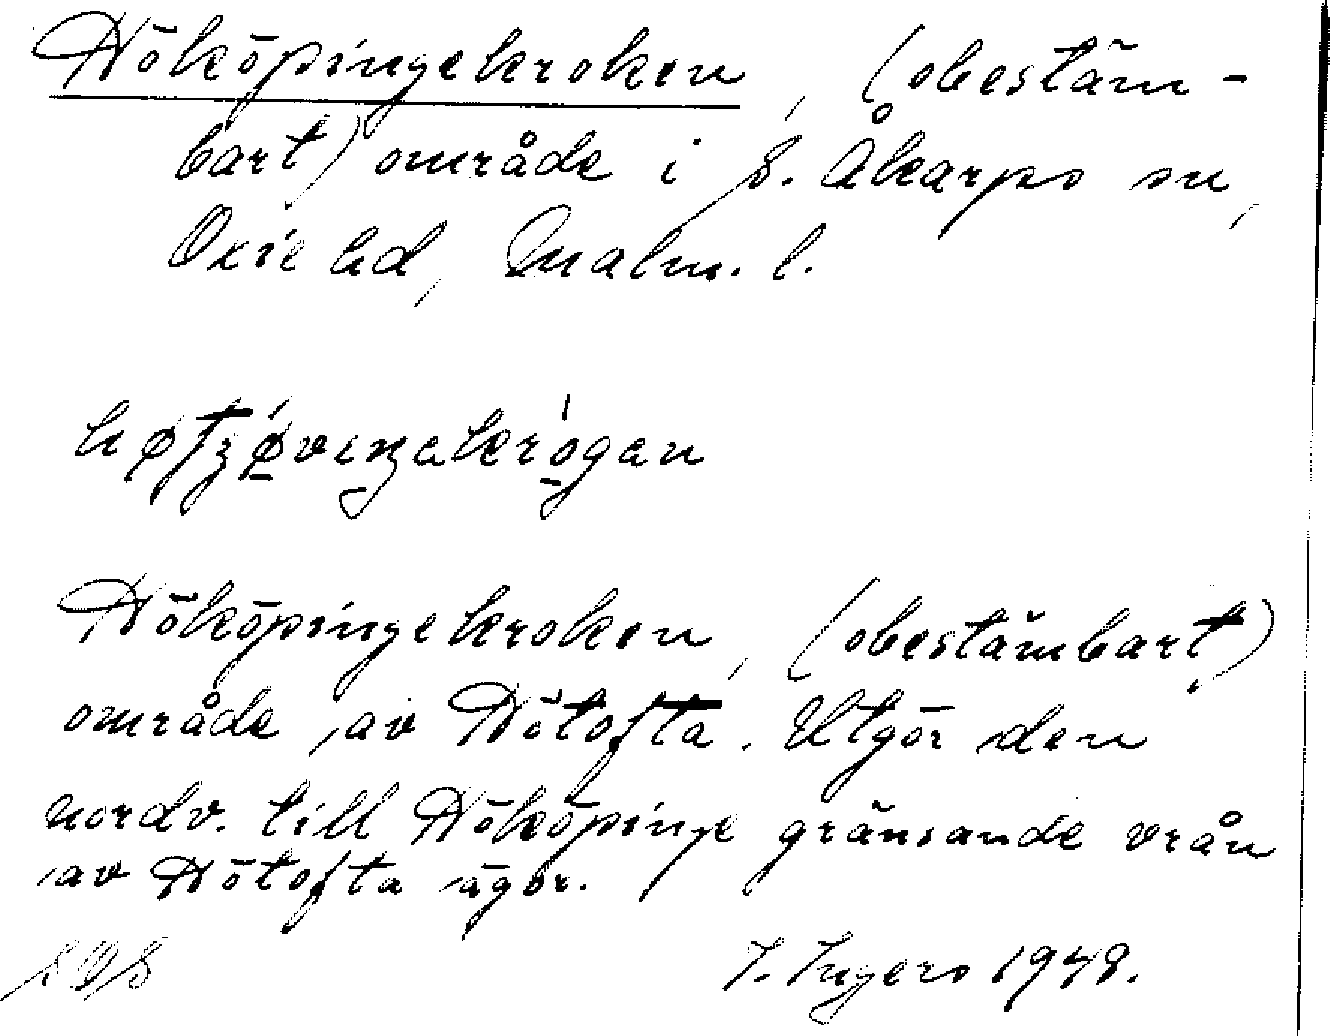 Hököpingekroken, (obestäm-
bart) område i S. Åkarps sn,
Oxie hd, Malm. l.
Hököpingekroken, (obestämbart)
område av Hötofta. Utgör den
nordv. till Hököpinge gränsande vrån
av Hötofta ägor.
I. Ingers 1948.